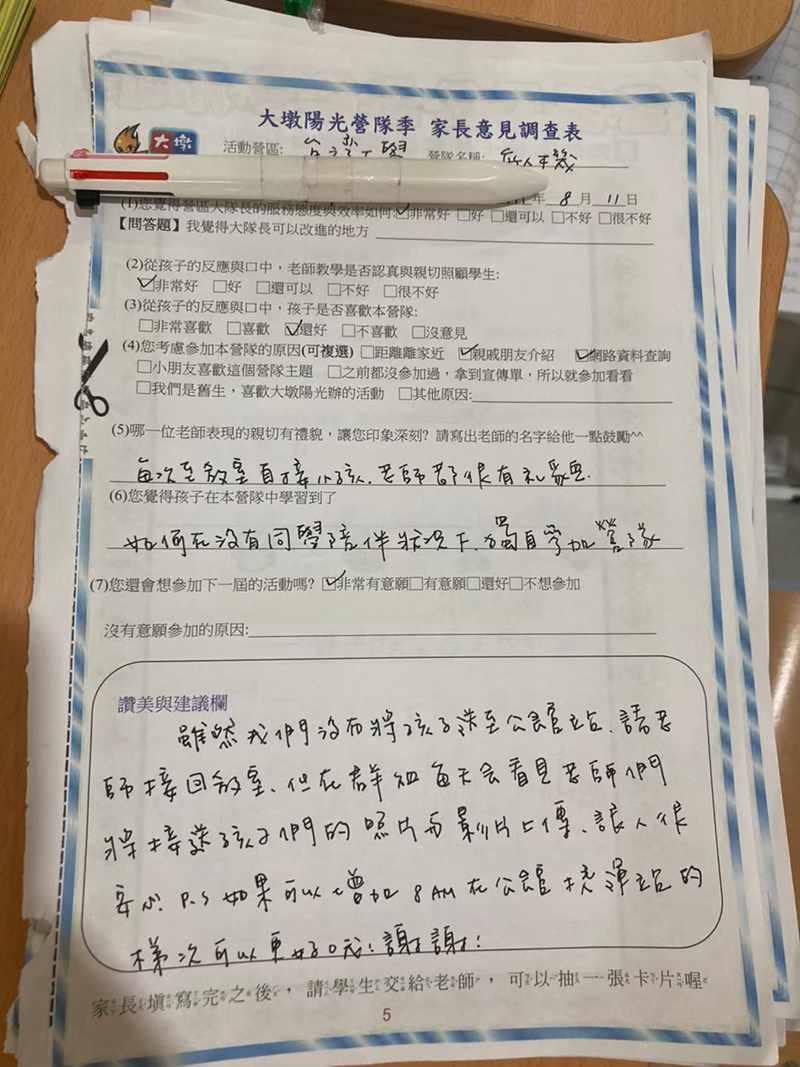 大墩陽光營隊季 家長意見調查表
大墩
活動營區: 台灣大學 營隊名稱:
年 8 月 11 日
(1)您覺得營區大隊長的服務態度與效率如何:☑非常好 □好 □還可以 □不好 □很不好
【問答題】我覺得大隊長可以改進的地方
(2)從孩子的反應與口中，老師教學是否認真與親切照顧學生:
☑非常好 □好 □還可以 □不好 □很不好
(3)從孩子的反應與口中，孩子是否喜歡本營隊:
□非常喜歡 □喜歡 ☑還好 □不喜歡 □沒意見
(4)您考慮參加本營隊的原因(可複選) □距離離家近 ☑親戚朋友介紹 ☑網路資料查詢
□小朋友喜歡這個營隊主題 □之前都沒參加過，拿到宣傳單，所以就參加看看
□我們是舊生，喜歡大墩陽光辦的活動 □其他原因:
(5)哪一位老師表現的親切有禮貌，讓您印象深刻? 請寫出老師的名字給他一點鼓勵^^
每次至教室直接接小孩、老師都很有礼貌.
(6)您覺得孩子在本營隊中學習到了
如何在沒有同學陪伴狀況下、獨自參加營隊
(7)您還會想參加下一屆的活動嗎? ☑非常有意願□有意願□還好□不想參加
沒有意願參加的原因:
讚美與建議欄
雖然我們沒有將孩子送至公館站、請老
師接回教室、但在群組每天會看見老師們
將接送孩子們的照片或影片上傳、讓人很
安心 P.S 如果可以增加 8 AM 在公館捷運站的
梯次可以更好哦! 謝謝!
家長填寫完之後，請學生交給老師，可以抽一張卡片喔
5